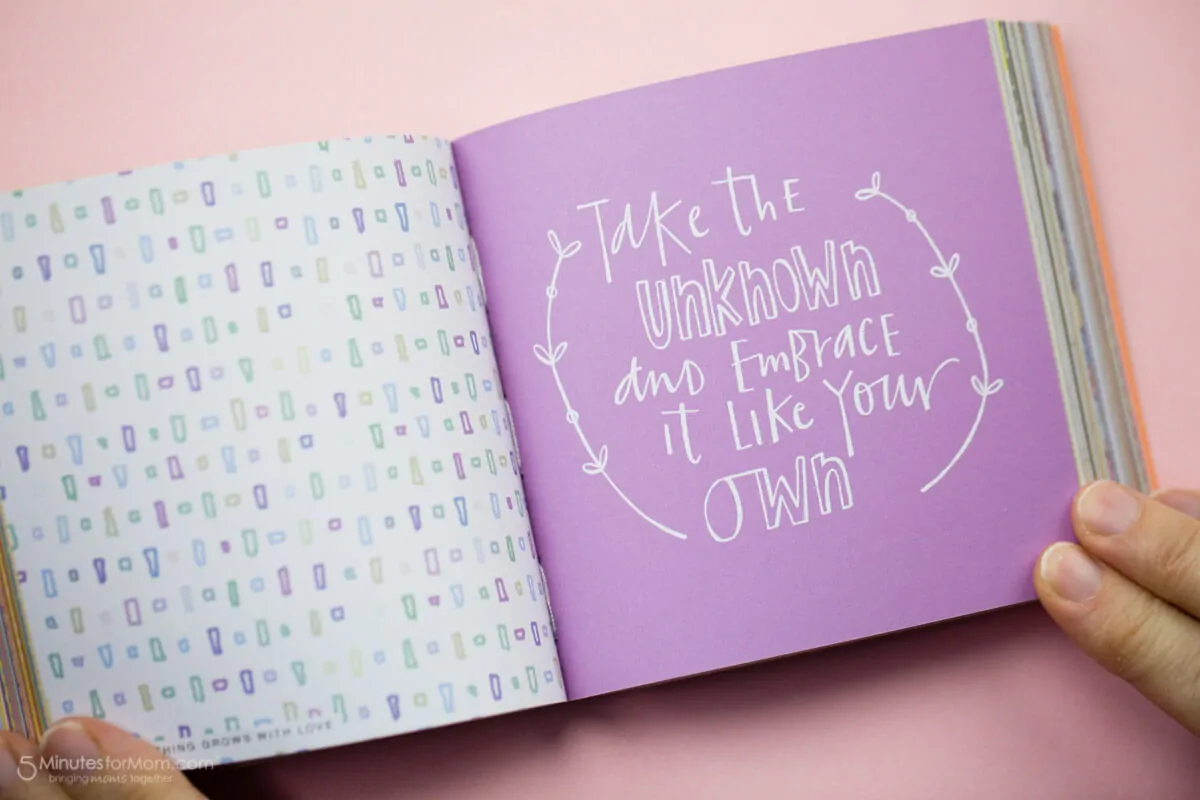 Take the
unknown
and Embrace
it like your
own
THING GROWS WITH LOVE
5MinutesforMom.com
bringing moms together